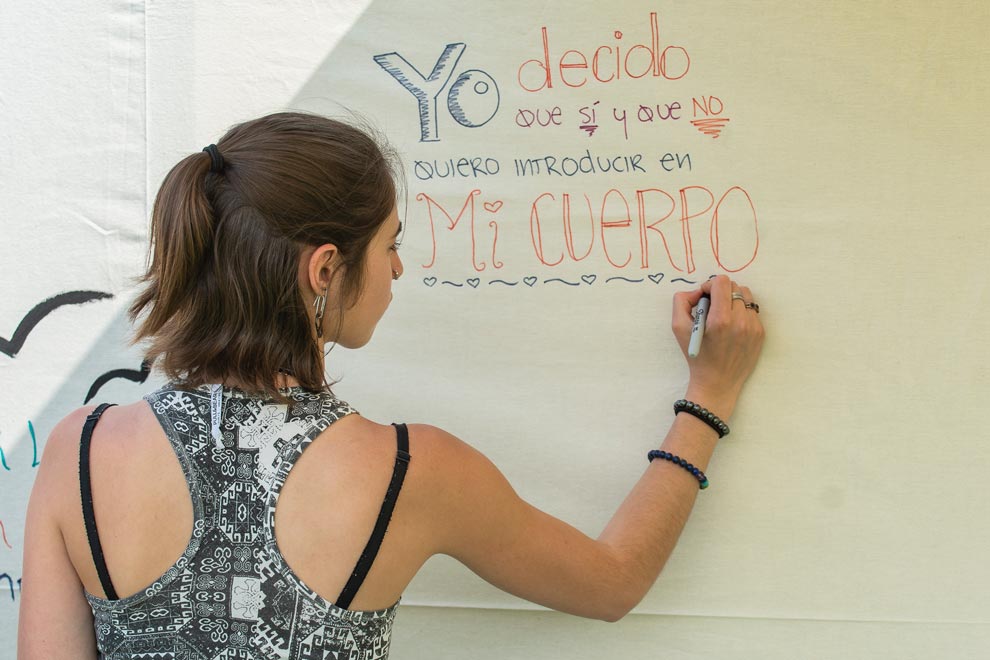 Yo decido
que sí y que NO
quiero introducir en
Mi CUERPO